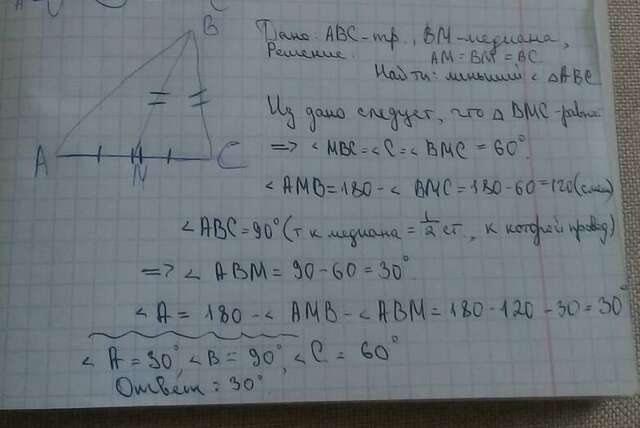 B
A
M
C
Дано: ABC-тр., BM-медиана,
Решение. AM=BM=BC
Найти: меньший < ΔABC
Из дано следует, что Δ BMC-равно
=> < MBC=<C=< BMC = 60°
< AMB=180-< BMC=180-60=120(смеж)
< ABC=90°(т к медиана = 1/2 ст, к которой провод)
=> < ABM= 90-60=30°
<A= 180-< AMB-<ABM=180-120-30=30°
< A=30°, <B=90°, <C= 60°
Ответ: 30°